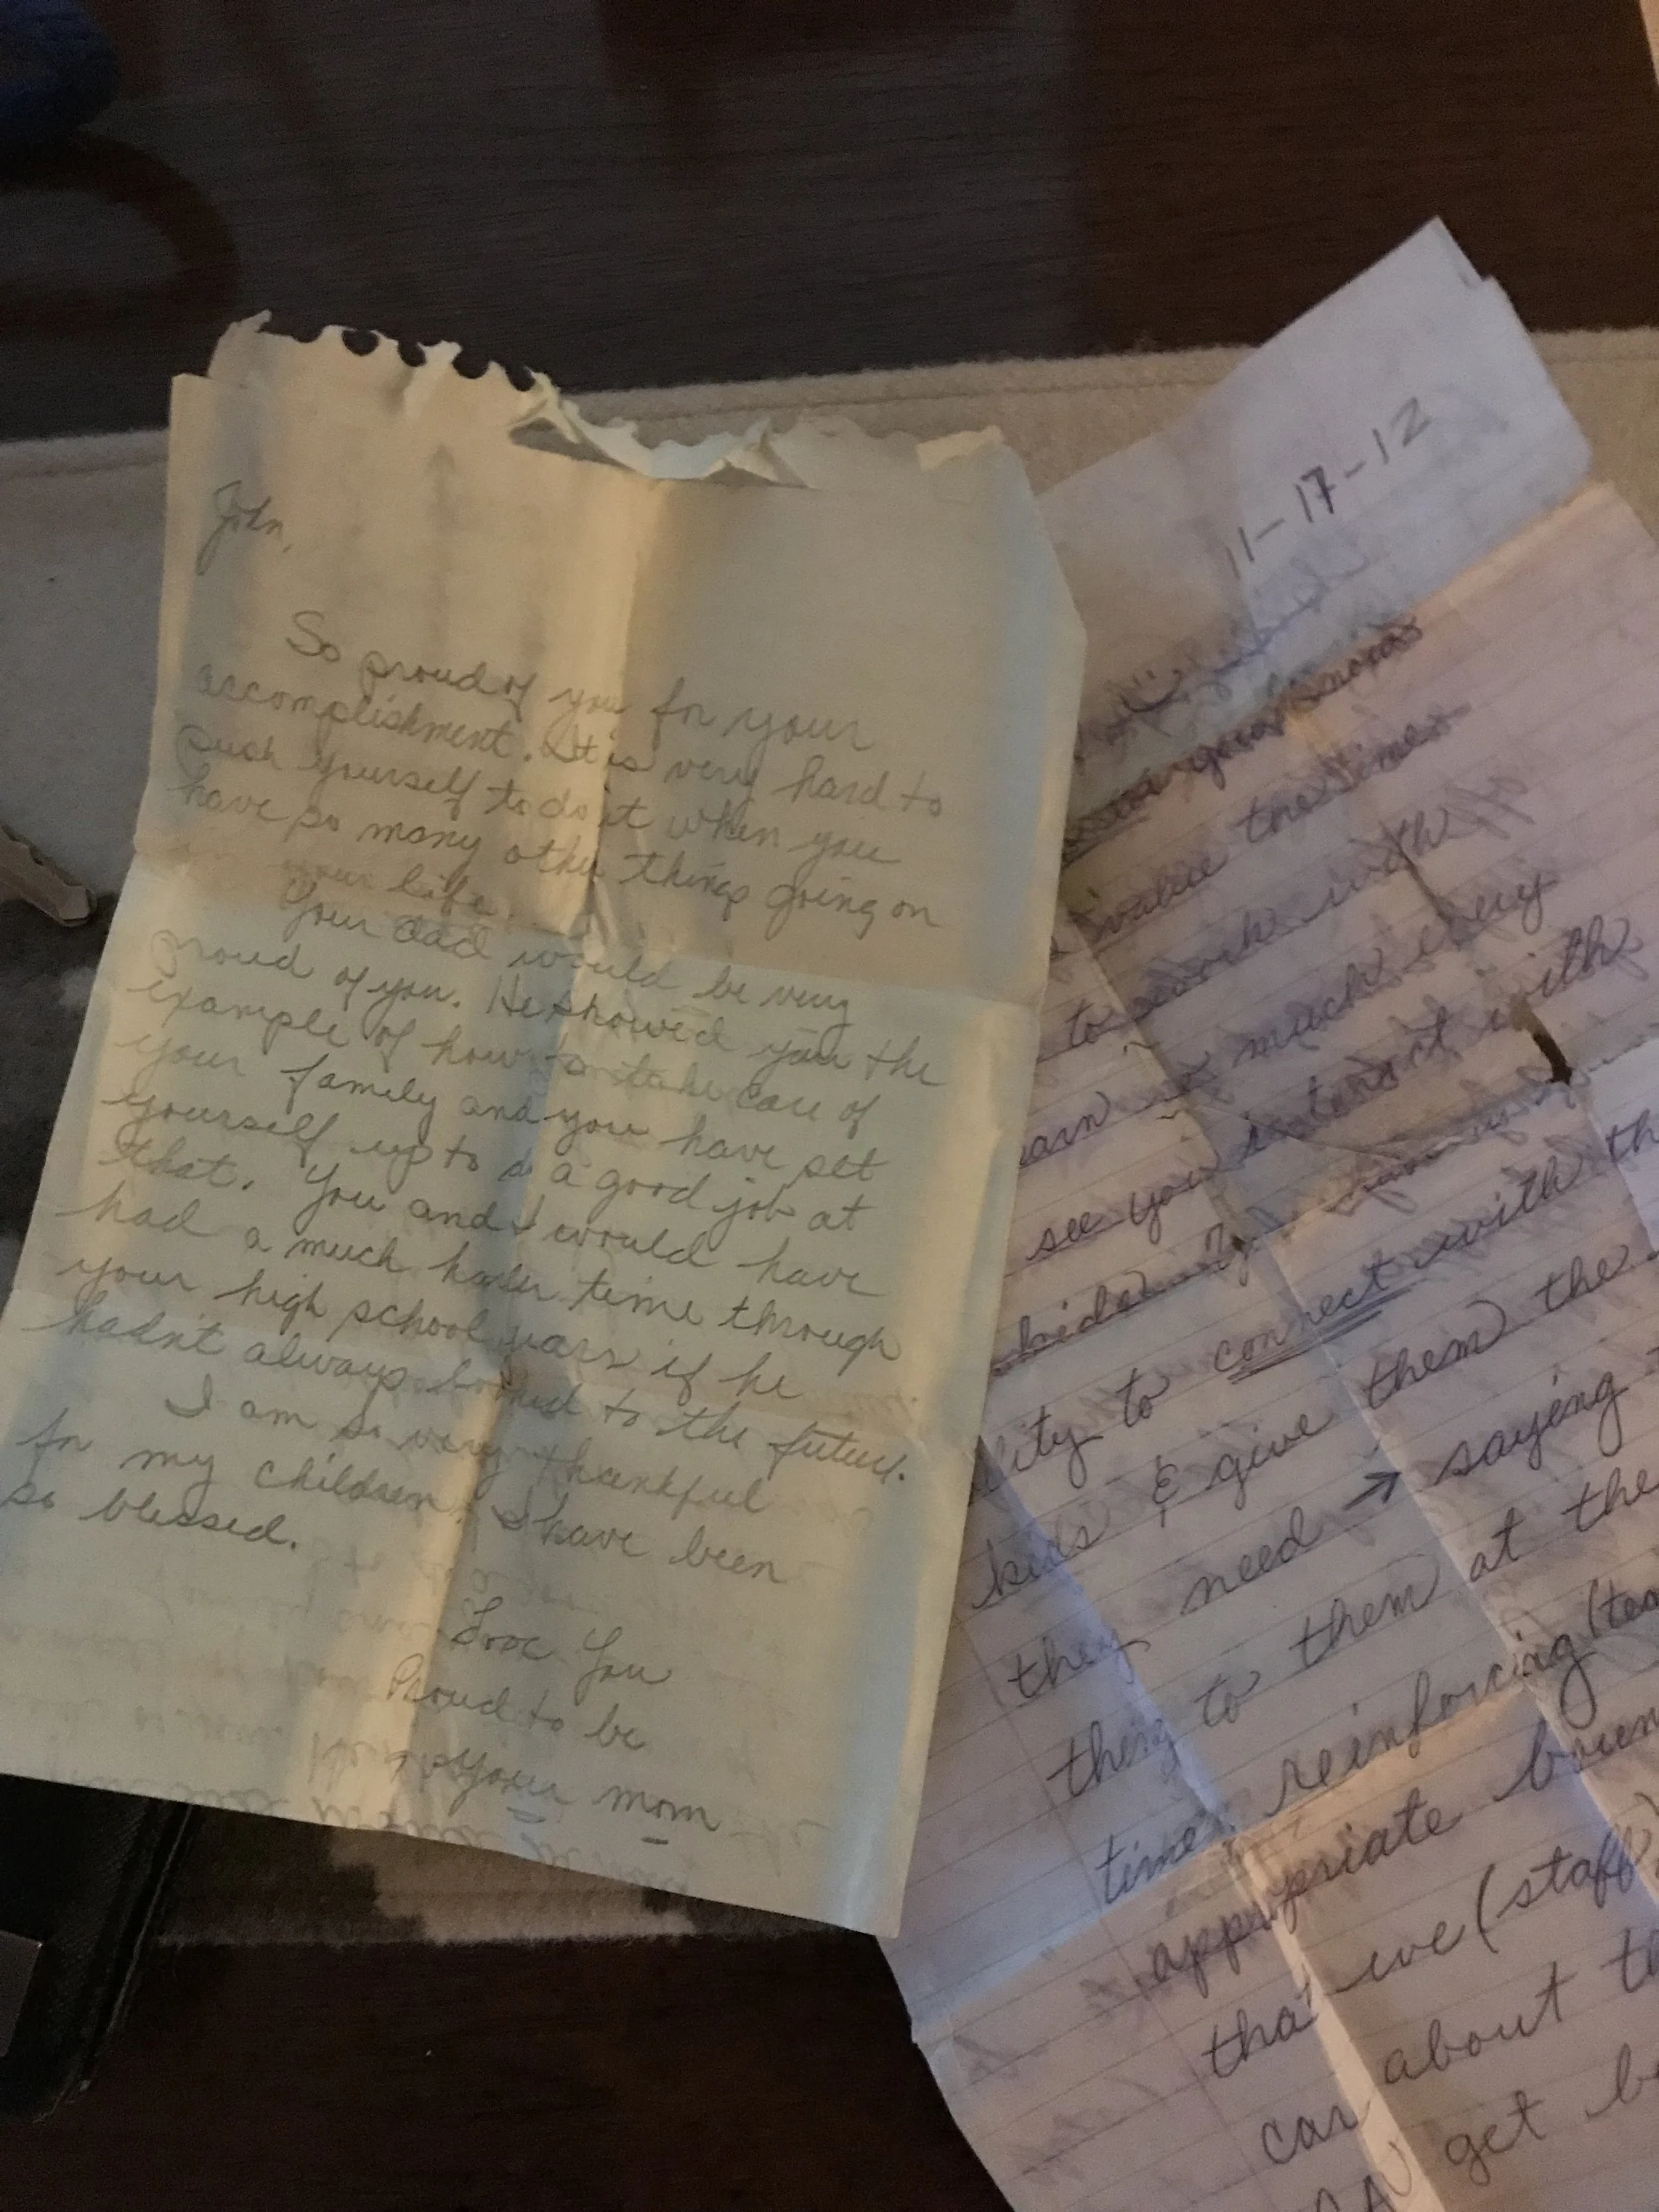 John,
So proud of you for your
accomplishment. It is very hard to
push yourself to do it when you
have so many other things going on
in your life.
Your dad would be very
proud of you. He showed you the
example of how to take care of
your family and you have set
yourself up to do a good job at
that. You and I would have
had a much harder time through
your high school years if he
hadn't always looked to the future.
I am so very thankful
for my children. I have been
so blessed.
Love You
Proud to be
your mom
11-17-12
value the time
to work with
much every
see you interact with
kids
lity to connect with th
kids & give them the
they need → saying
thing to them at the
time, reinforcing
appropriate boun
that we (staff)
about th
can
get be